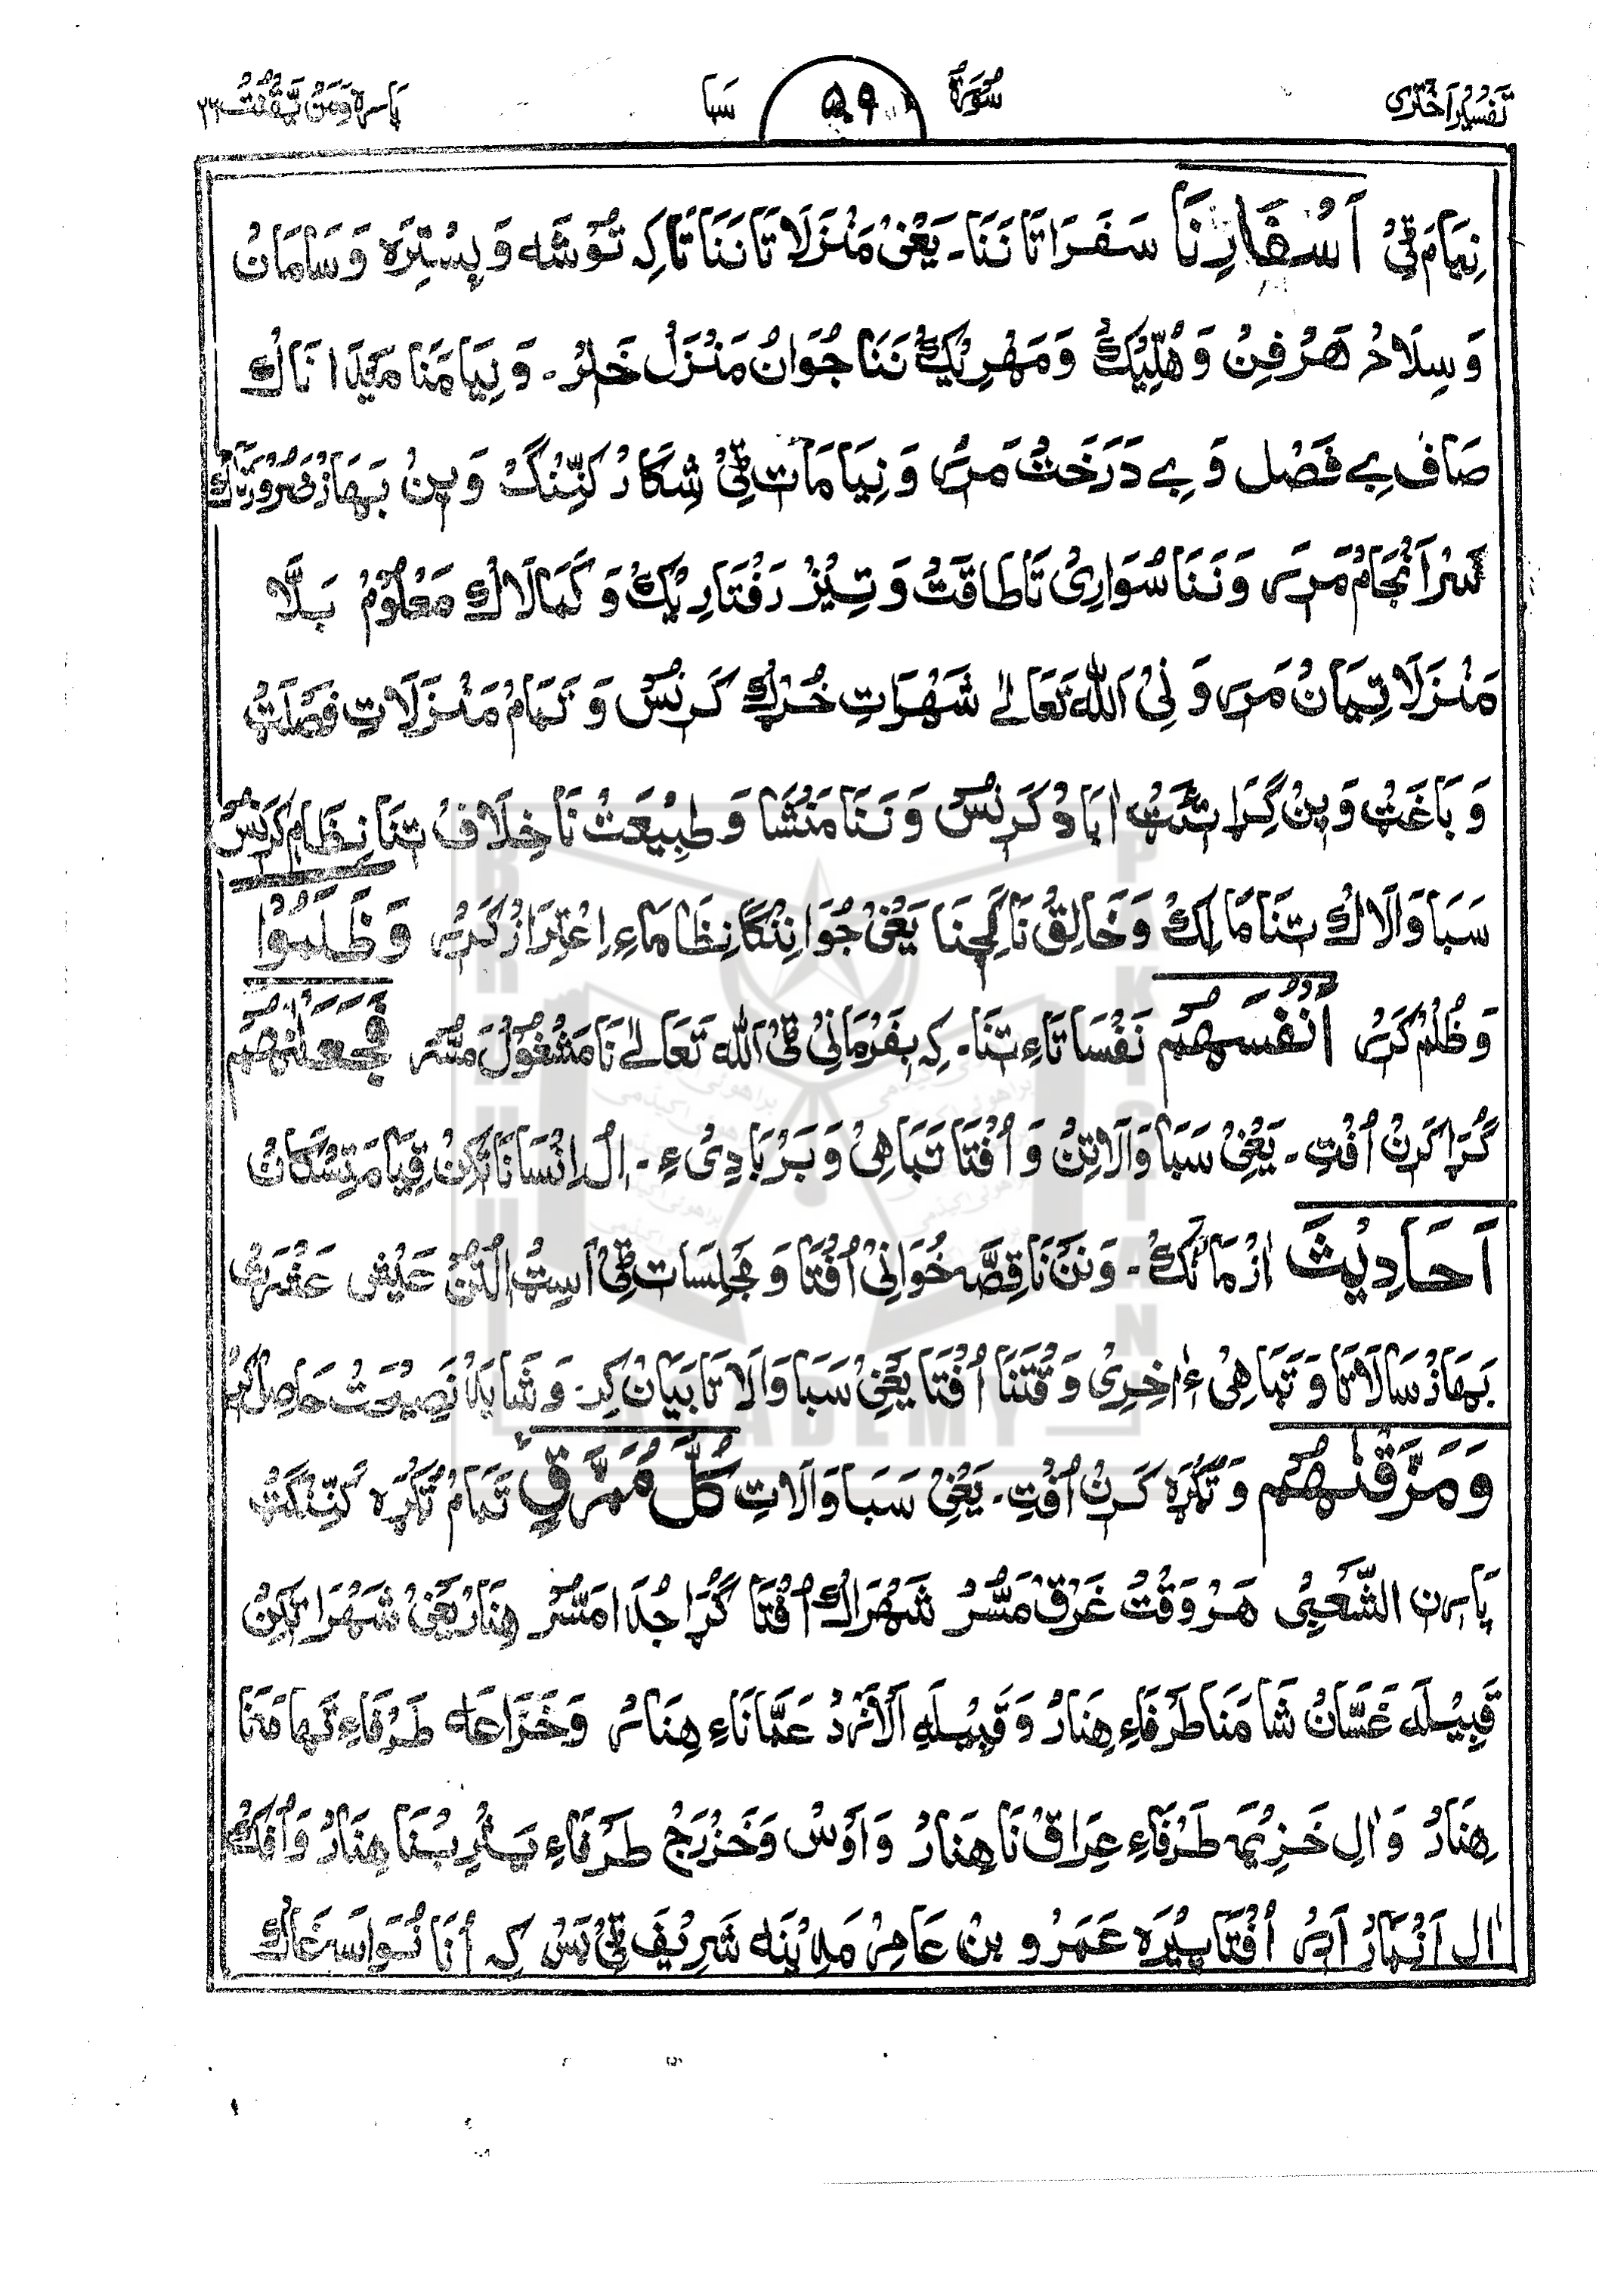 تَفسِیر اَختَرِی سُورَة ۵۹ سَبا پَاره وَمَن یَّقنُت ۲۲
نِیَام ٹِی اَسْفَارِنَا سَفَرَاتَا نَنَا۔ یَعْنِیْ مَنْزَلَاتَا نَنَا تَاکِہ تَوْشَہ وَ بِسْتِرَہ وَ سَامَانْ
وَ سِلَاحْ ھَرْفِنْ وَ ھُلِّیْکْ وَ مَھْرِیْکْ نَنَا جُوَانْ مَنْزَلْ خَلِرْ۔ وَ نِیَامَنَا مَیْدَانَاکْ
صَافْ بِے فَصْل وَ بِے دَرَخْتْ مَرِی وَ نِیَامَاتِ ٹِی شِکَارْ کَنِّنْگْ وَ پِنْ بَھَازْ ضَرُورَتَاکْ
سَرْاَنْجَامْ مَرِی وَ نَنَا سُوَارِیْ تَا طَاقَتْ وَ تِیْزْ رَفْتَارِیْکْ وَ کَمَالَاکْ مَعْلُوْمْ بَلَّا
مَنْزَلَاتِیَانْ مَرِی وَ نِیْ اَللّٰہ تَعَالٰے شَھْرَاتِ خُرْکْ کَرِنُسْ وَ تَمَامْ مَنْزَلَاتِ فَصْلَتْ
وَ بَاغَتْ وَ پِنْ گِرَاتِتْ اٰبَادْ کَرِنُسْ وَ نَنَا مَنْشَا وَ طَبِیْعَتْ نَا خِلَافْ تِنَا نِظَامْ کَرِنُسْ
سَبَاوَالَاکْ تِنَا مَالِکْ وَ خَالِقْ نَا گِچِنَا یَعْنِیْ جُوَانَنْگَا نِظَامَاءِ اِعْتِرَازْ کَرِیْ وَظَلَمُوْا
وَ ظُلْم کَرِیْ اَنْفُسَھُمْ نَفْسَاتَاءِ تِنَا۔ کِہ بِفَرْمَانِیْ ٹِیْ اَللّٰہ تَعَالٰے نَا مَشْغُوْلْ مَسُّرْ فَجَعَلْنٰھُمْ
گُڑَا کَرِنْ اُفْتِ۔ یَعْنِیْ سَبَاوَالَاتِنْ وَ اُفْتَا تَبَاھِیْ وَ بَرْبَادِیْءِ۔ اِلْ اِنْسَانَاتِکِنْ قِیَامَتِسْکَانْ
اَحَادِیْثَ اَزْمَانَکْ۔ وَ نَنْ نَا قِصَّہ خُوَانِیْ اُفْتَا وَ مَجْلِسَاتِ ٹِیْ اَسِتْ اَلَّنْ عَیْش عَشْرَتْ
بَھَازْ سَالَاتَا وَ تَبَاھِیْءِ اٰخِرِیْ وَقْتَنَا اُفْتَا یَعْنِیْ سَبَاوَالَاتَا بَیَانْ کِہ۔ وَ شَایَدْ نَصِیْحَتْ حَاصِلْ کَرِ
وَمَزَّقْنٰھُمْ وَ ٹُکُّرَہ کَرِنْ اُفْتِ۔ یَعْنِیْ سَبَاوَالَاتِ کُلَّ مُمَزَّقٍ تَمَامْ ٹُکُّرَہ کَنِّنْگَتْ
پَارِن الشَّعْبِیْ ھَرْ وَقْتْ غَرْقْ مَسُّرْ شَھْرَاکْ اُفْتَا گُڑَا جُدَا مَسُّرْ ھِنَارْ یَعْنِیْ شَھْرَاتِکِنْ
قَبِیْلَہ غَسَّانْ شَامَنَا طَرْفَاءِ ھِنَارْ وَ قَبِیْلَہ اَلْاَزْدْ عَمَّانَاءِ ھِنَارْ وَ خَزَاعَہ طَرْفَاءِ تَھَامَہنَا
ھِنَارْ وَ اٰلِ خَزِیْمَہ طَرْفَاءِ عِرَاقْ نَا ھِنَارْ وَ اَوْسْ وَ خَزْرَجْ طَرْفَاءِ یَثْرِبْنَا ھِنَارْ وَ اُفْکْ
اٰلِ اَنْمَارْ اَرِیْ اُفْتَا پِیْرَہ عَمَرْو بِنْ عَامِرْ مَدِیْنَہ شَرِیْفَ ٹِیْ بَسْ کِہ اُنَا نَوَاسَغَاکْ